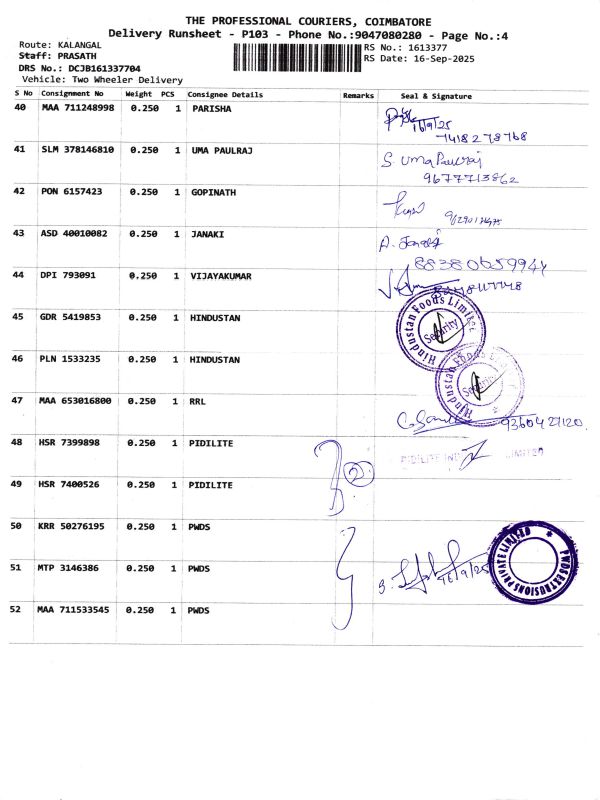 THE PROFESSIONAL COURIERS, COIMBATORE
Delivery Runsheet - P103 - Phone No.:9047080280 - Page No.:4
Route: KALANGAL
Staff: PRASATH
DRS No.: DCJB161337704
Vehicle: Two Wheeler Delivery
RS No.: 1613377
RS Date: 16-Sep-2025
S No Consignment No Weight PCS Consignee Details Remarks Seal & Signature
40 MAA 711248998 0.250 1 PARISHA
16/9/25
7418278768
41 SLM 378146810 0.250 1 UMA PAULRAJ S. Uma Paulraj
9677713862
42 PON 6157423 0.250 1 GOPINATH
43 ASD 40010082 0.250 1 JANAKI A. Janaki
44 DPI 793091 0.250 1 VIJAYAKUMAR
45 GDR 5419853 0.250 1 HINDUSTAN Hindustan Foods Limited
Security
46 PLN 1533235 0.250 1 HINDUSTAN Hindustan Foods
Security
47 MAA 653016800 0.250 1 RRL
48 HSR 7399898 0.250 1 PIDILITE 2 PIDILITE IND LIMITED
49 HSR 7400526 0.250 1 PIDILITE
50 KRR 50276195 0.250 1 PWDS
51 MTP 3146386 0.250 1 PWDS 16/9/25 PRIVATE LIMITED
52 MAA 711533545 0.250 1 PWDS